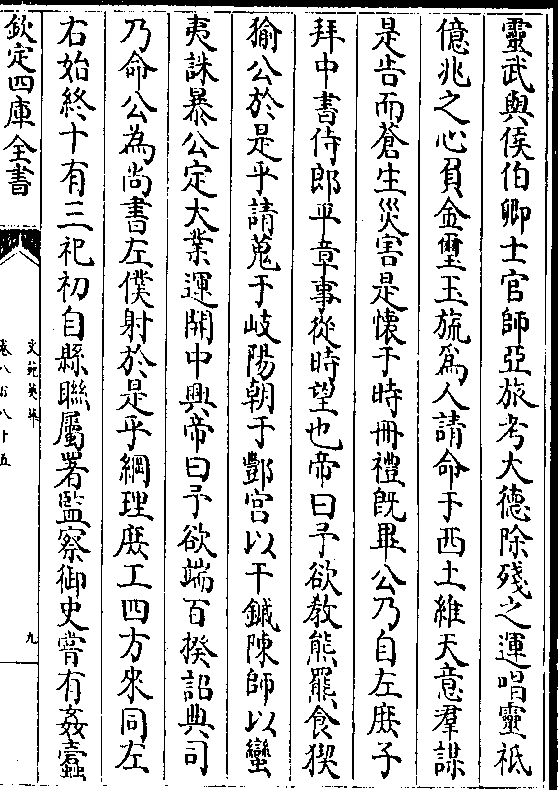 靈武與侯伯卿士官師亞旅考大德除殘之運唱靈祗
億兆之心負金璽玉旒爲人請命于西土維天意羣謀
是告而蒼生災害是懷于時冊禮既畢公乃自左庶子
拜中書侍郎平章事從時望也帝曰予欲教熊羆食猰
貐公於是乎請蒐于岐陽朝于酆宫以干鏚陳師以蠻
夷誅暴公定大業運開中興帝曰予欲端百揆詔典司
乃命公為尚書左僕射於是乎綱理庶工四方來同左
右始終十有三祀初自縣聮屬署監察御史嘗有姦蠧
欽定四庫全書
文苑英華
卷八百八十五
九